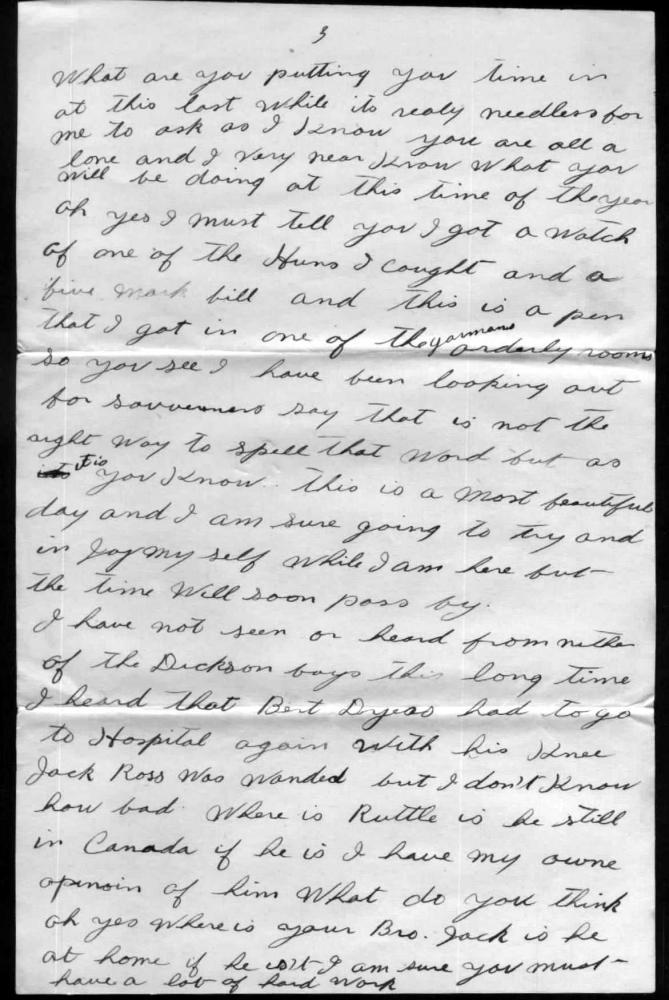 3
What are you putting you time in
at this last while its realy needless for
me to ask as I Know you are all a
lone and I very near Know What you
will be doing at this time of the year
oh yes I must tell you I got a Watch
of one of the Huns I caught and a
five mark bill and this is a pen
that I got in one of the yarmans orderly rooms
so you see I have been looking out
for souverners say that is not the
right way to spell that word but as
it is you Know. this is a most beautiful
day and I am sure going to try and
in joy my self while I am here but
the time Will soon pass by.
I have not seen or heard from nether
of the Dickson boys this long time
I heard that Bert Dyeas had to go
to Hospital again with his Knee
Jack Ross Was Wanded but I don't Know
how bad. Where is Ruttle is he still
in Canada if he is I have my owne
opinoin of him What do you think
oh yes Where is your Bro. Jack is he
at home if he isn't I am sure you must
have a lot of hard work